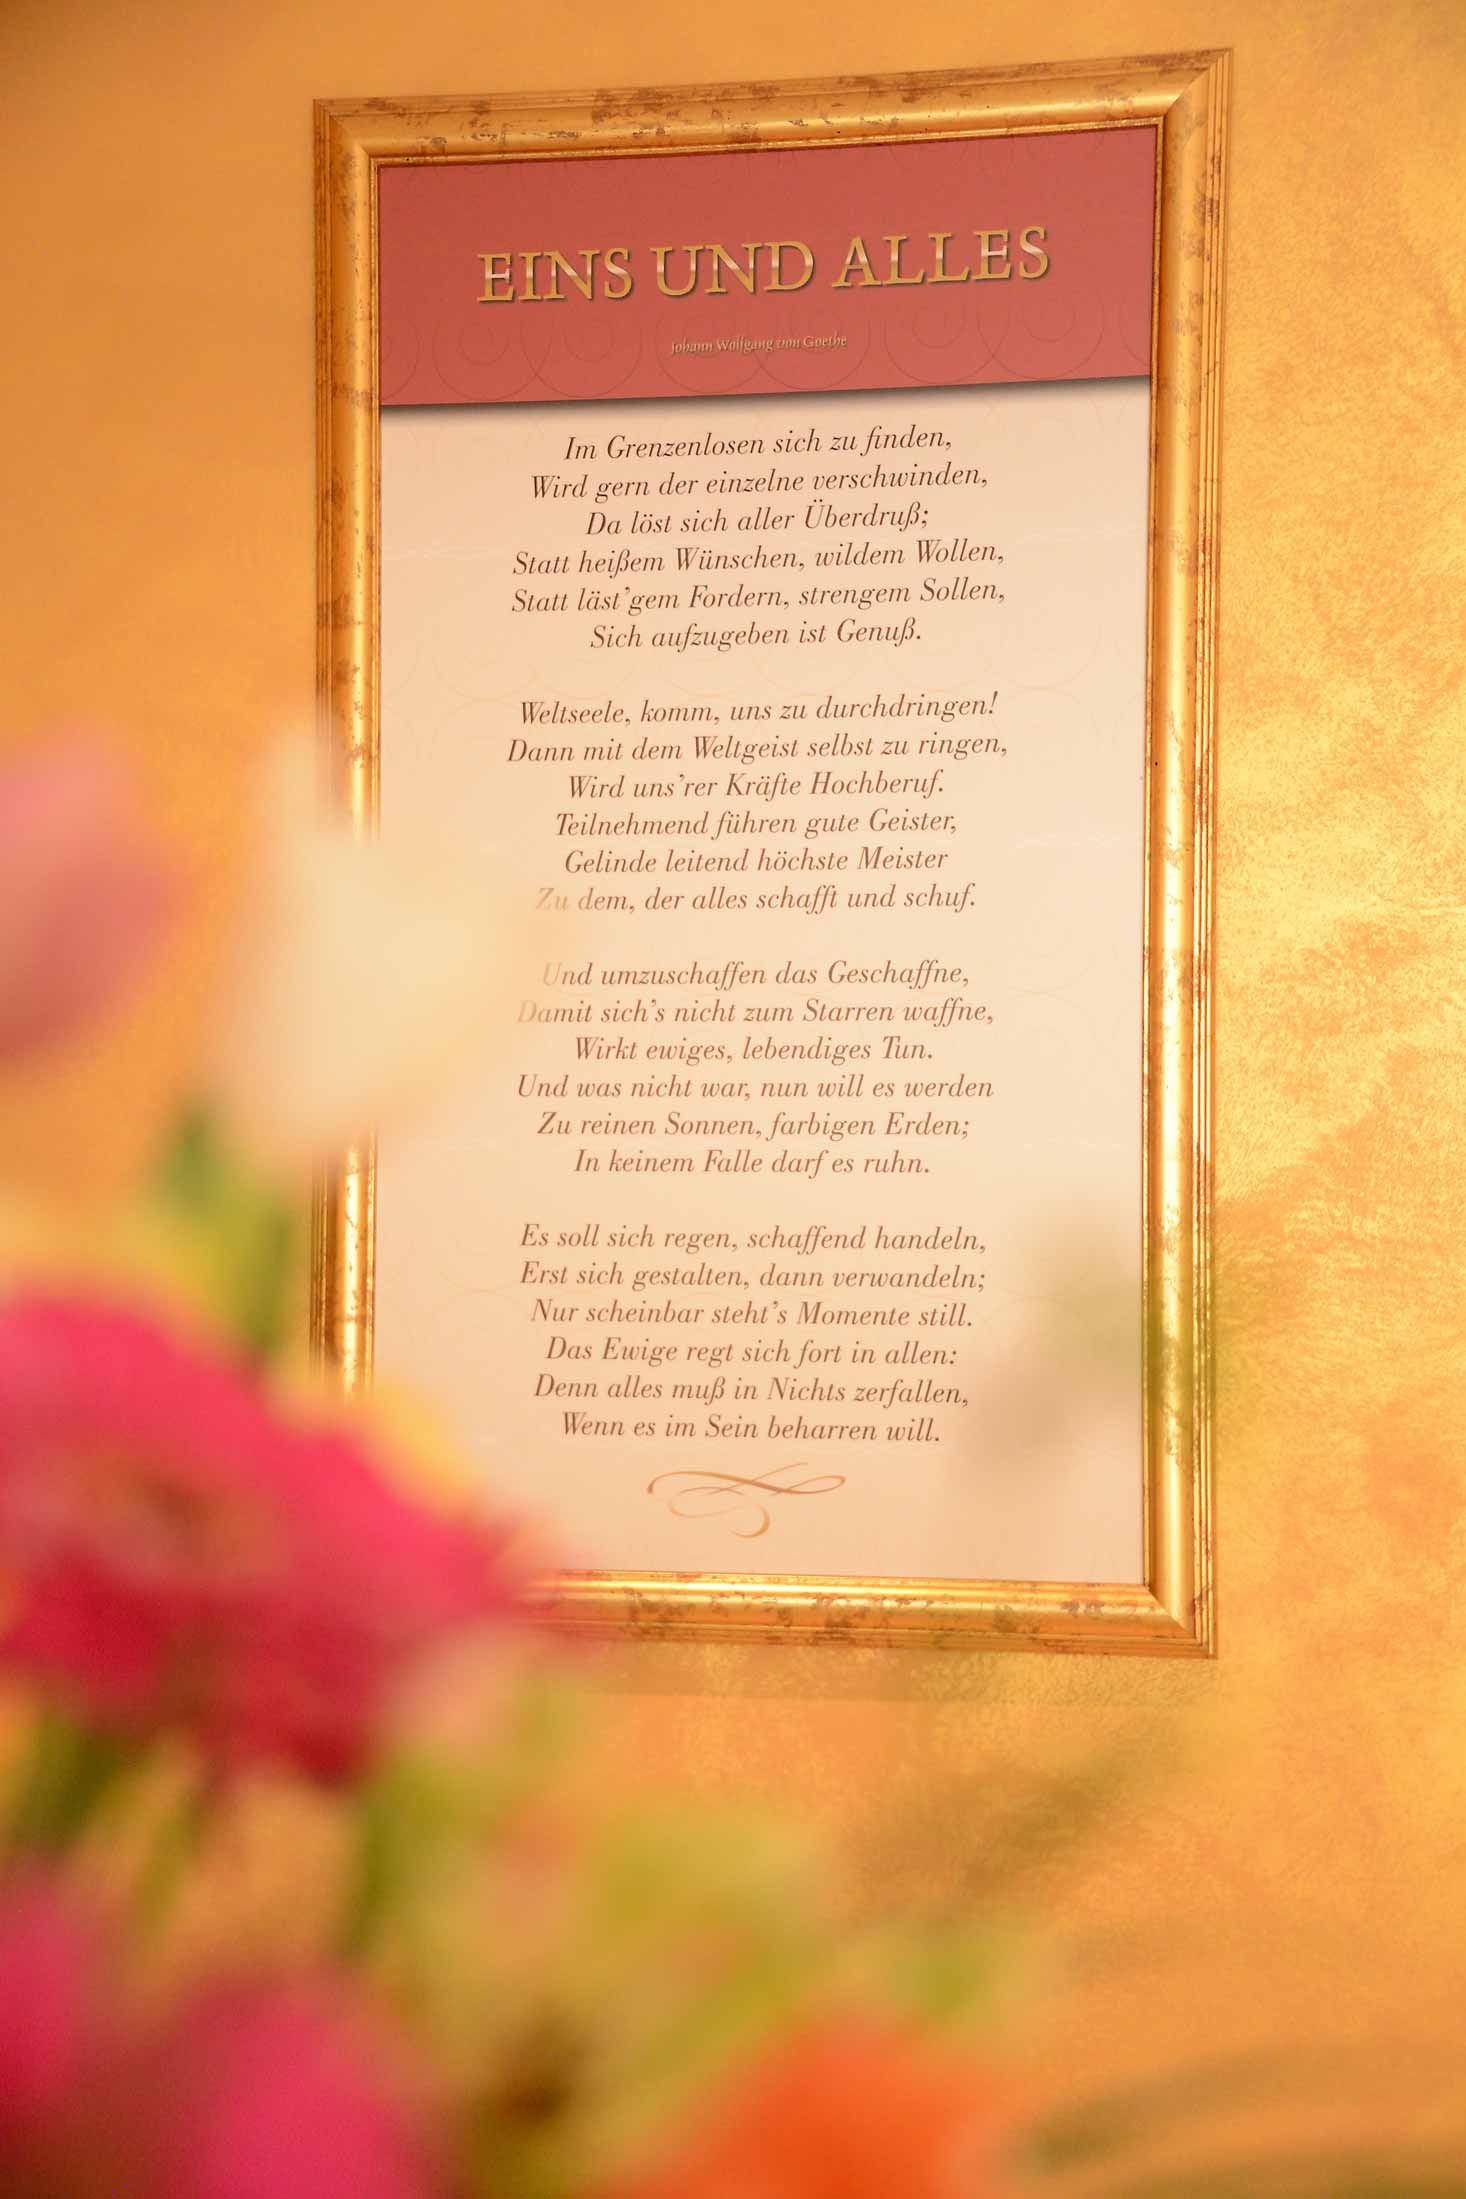 EINS UND ALLES
Johann Wolfgang von Goethe
Im Grenzenlosen sich zu finden,
Wird gern der einzelne verschwinden,
Da löst sich aller Überdruß;
Statt heißem Wünschen, wildem Wollen,
Statt läst'gem Fordern, strengem Sollen,
Sich aufzugeben ist Genuß.
Weltseele, komm, uns zu durchdringen!
Dann mit dem Weltgeist selbst zu ringen,
Wird uns'rer Kräfte Hochberuf.
Teilnehmend führen gute Geister,
Gelinde leitend höchste Meister
Zu dem, der alles schafft und schuf.
Und umzuschaffen das Geschaffne,
Damit sich's nicht zum Starren waffne,
Wirkt ewiges, lebendiges Tun.
Und was nicht war, nun will es werden
Zu reinen Sonnen, farbigen Erden;
In keinem Falle darf es ruhn.
Es soll sich regen, schaffend handeln,
Erst sich gestalten, dann verwandeln;
Nur scheinbar steht's Momente still.
Das Ewige regt sich fort in allen:
Denn alles muß in Nichts zerfallen,
Wenn es im Sein beharren will.